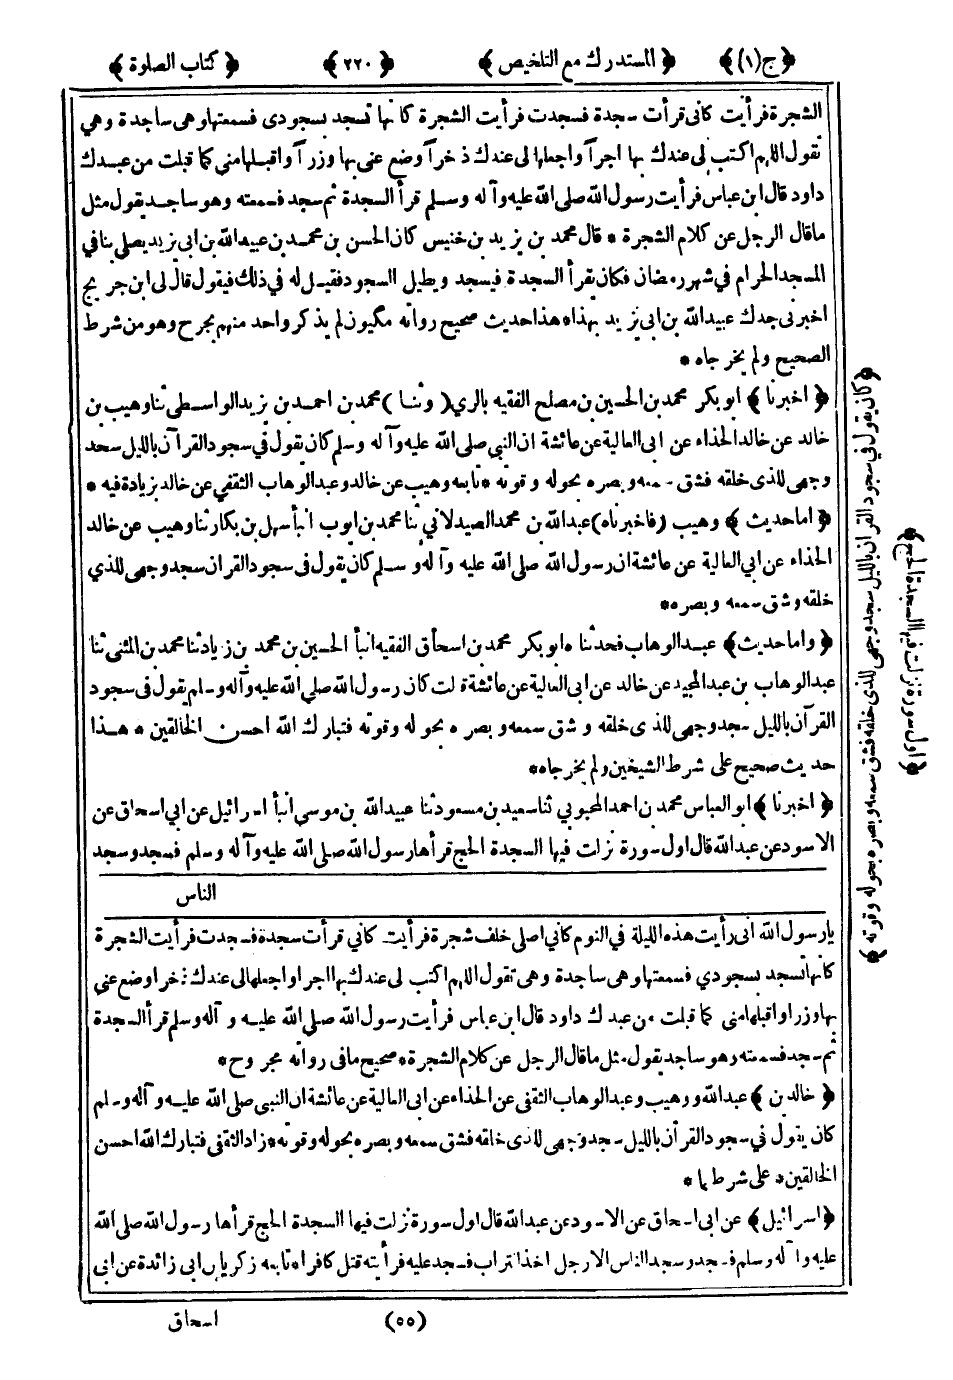 ﴿ج(١)﴾ ﴿المستدرك مع التلخيص﴾ ﴿٢٢٠﴾ ﴿كتاب الصلوة﴾
الشجرة فرأيت كانى قرأت سجدة فسجدت فرأيت الشجرة كانها تسجد بسجودى فسمعتها وهى ساجدة وهى
تقول اللهم اكتب لى عندك بها اجراً واجعلها لى عندك ذخراً وضع عنى بها وزراً واقبلها منى كما قبلت من عبدك
داود قال ابن عباس فرأيت رسول الله صلى الله عليه وآله وسلم قرأ السجدة ثم سجد فسمعته وهو ساجد يقول مثل
ماقال الرجل عن كلام الشجرة * قال محمد بن يزيد بن خنيس كان الحسن بن محمد بن عبيد الله بن ابى يزيد يصلى بنا فى
المسجد الحرام فى شهر رمضان فكان يقرأ السجدة فيسجد ويطيل السجود فقيل له فى ذلك فيقول قال لى ابن جريج
اخبرنى جدك عبيد الله بن ابى يزيد بهذا * هذا حديث صحيح رواته مكيون لم يذكر واحد منهم بجرح وهو من شرط
الصحيح ولم يخرجاه *
﴿اخبرنا﴾ ابو بكر محمد بن الحسين بن مصلح الفقيه بالرى (وثنا) محمد بن احمد بن زيد الواسطى ثنا وهيب بن
خالد عن خالد الحذاء عن ابى العالية عن عائشة ان النبى صلى الله عليه وآله وسلم كان يقول فى سجود القرآن بالليل سجد
وجهى للذى خلقه فشق سمعه وبصره بحوله وقوته * تابعه وهيب عن خالد وعبد الوهاب الثقفى عن خالد بزيادة فيه *
﴿اماحديث﴾ وهيب (فاخبرناه) عبد الله بن محمد الصيدلانى ثنا محمد بن ايوب انبأ سهل بن بكار ثنا وهيب عن خالد
الحذاء عن ابى العالية عن عائشة ان رسول الله صلى الله عليه وآله وسلم كان يقول فى سجود القران سجد وجهى للذى
خلقه وشق سمعه وبصره *
﴿واماحديث﴾ عبد الوهاب فحدثناه ابو بكر محمد بن اسحاق الفقيه انبأ الحسين بن محمد بن زياد ثنا محمد بن المثنى ثنا
عبد الوهاب بن عبد المجيد عن خالد عن ابى العالية عن عائشة قالت كان رسول الله صلى الله عليه وآله وسلم يقول فى سجود
القرآن بالليل سجد وجهى للذى خلقه وشق سمعه وبصره بحوله وقوته فتبارك الله احسن الخالقين * هذا
حديث صحيح على شرط الشيخين ولم يخرجاه *
﴿اخبرنا﴾ ابو العباس محمد بن احمد المحبوبى ثنا سعيد بن مسعود ثنا عبيد الله بن موسى انبأ اسرائيل عن ابى اسحاق عن
الاسود عن عبد الله قال اول سورة نزلت فيها السجدة الحج قرأها رسول الله صلى الله عليه وآله وسلم فسجد وسجد
الناس
﴿كان يقول فى سجود القرآن بالليل سجد وجهى للذى خلقه فشق سمعه وبصره بحوله وقوته﴾
﴿اول سورة نزلت فيها السجدة الحج﴾
يا رسول الله انى رأيت هذه الليلة فى النوم كانى اصلى خلف شجرة فرأيت كانى قرأت سجدة فسجدت فرأيت الشجرة
كانها تسجد بسجودى فسمعتها وهى ساجدة وهى تقول اللهم اكتب لى عندك بها اجرا واجعلها لى عندك ذخرا وضع عنى
بها وزرا واقبلها منى كما قبلت من عبدك داود قال ابن عباس فرأيت رسول الله صلى الله عليه وآله وسلم قرأ السجدة
ثم سجد فسمعته وهو ساجد يقول مثل ماقال الرجل عن كلام الشجرة * صحيح مافى رواته مجروح *
﴿خالد بن﴾ عبد الله ووهيب وعبد الوهاب الثقفى عن الحذاء عن ابى العالية عن عائشة ان النبى صلى الله عليه وآله وسلم
كان يقول فى سجود القرآن بالليل سجد وجهى للذى خلقه فشق سمعه وبصره بحوله وقوته * زاد الثقفى فتبارك الله احسن
الخالقين * على شرطهما *
﴿اسرائيل﴾ عن ابى اسحاق عن الاسود عن عبد الله قال اول سورة نزلت فيها السجدة الحج قرأها رسول الله صلى الله
عليه وآله وسلم فسجد وسجد الناس الا رجل اخذ التراب فسجد عليه فرأيته قتل كافرا * تابعه زكريا بن ابى زائدة عن ابى
(٥٥) اسحاق